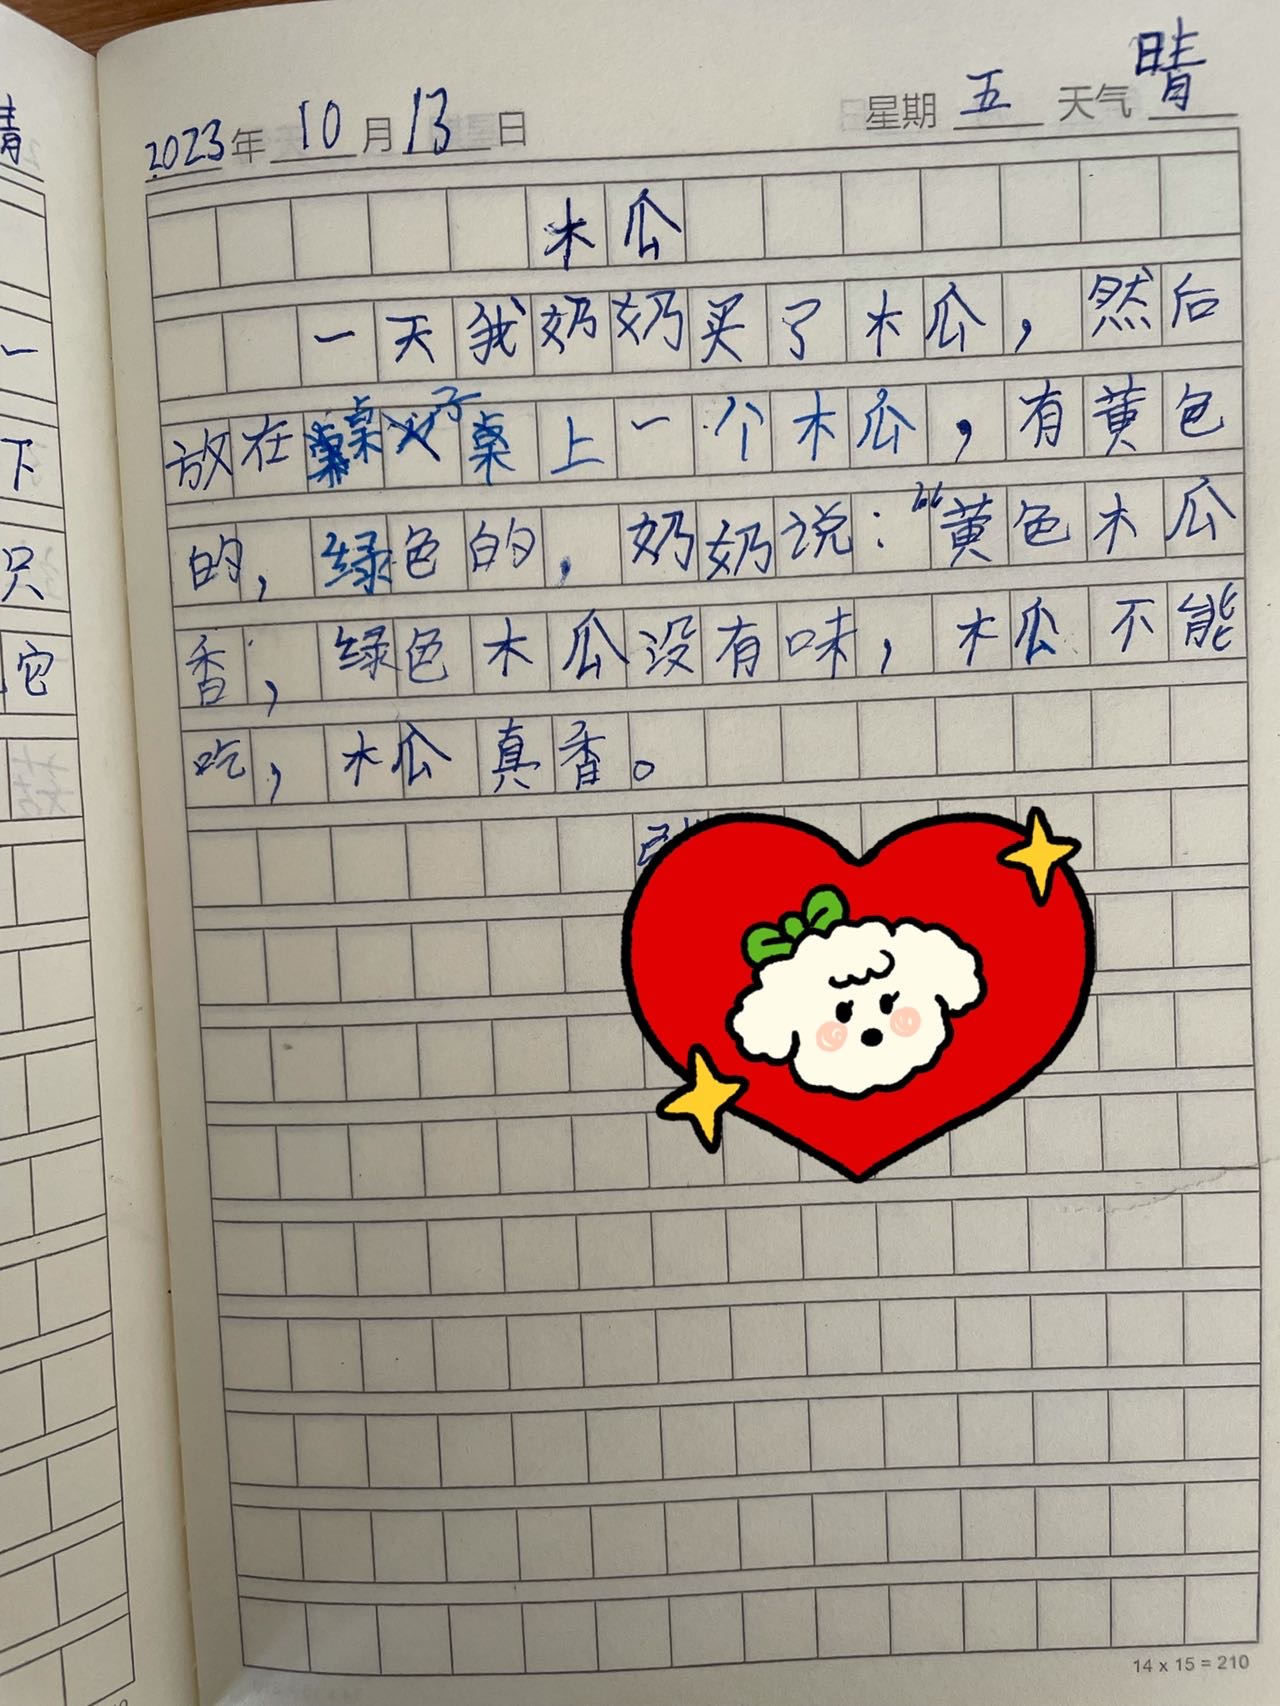 2023年10月13日 星期五 天气晴
木瓜
一天我奶奶买了木瓜，然后
放在桌子桌上一个木瓜，有黄色
的，绿色的，奶奶说：“黄色木瓜
香，绿色木瓜没有味，木瓜不能
吃，木瓜真香。
14 x 15 = 210
下
只
它